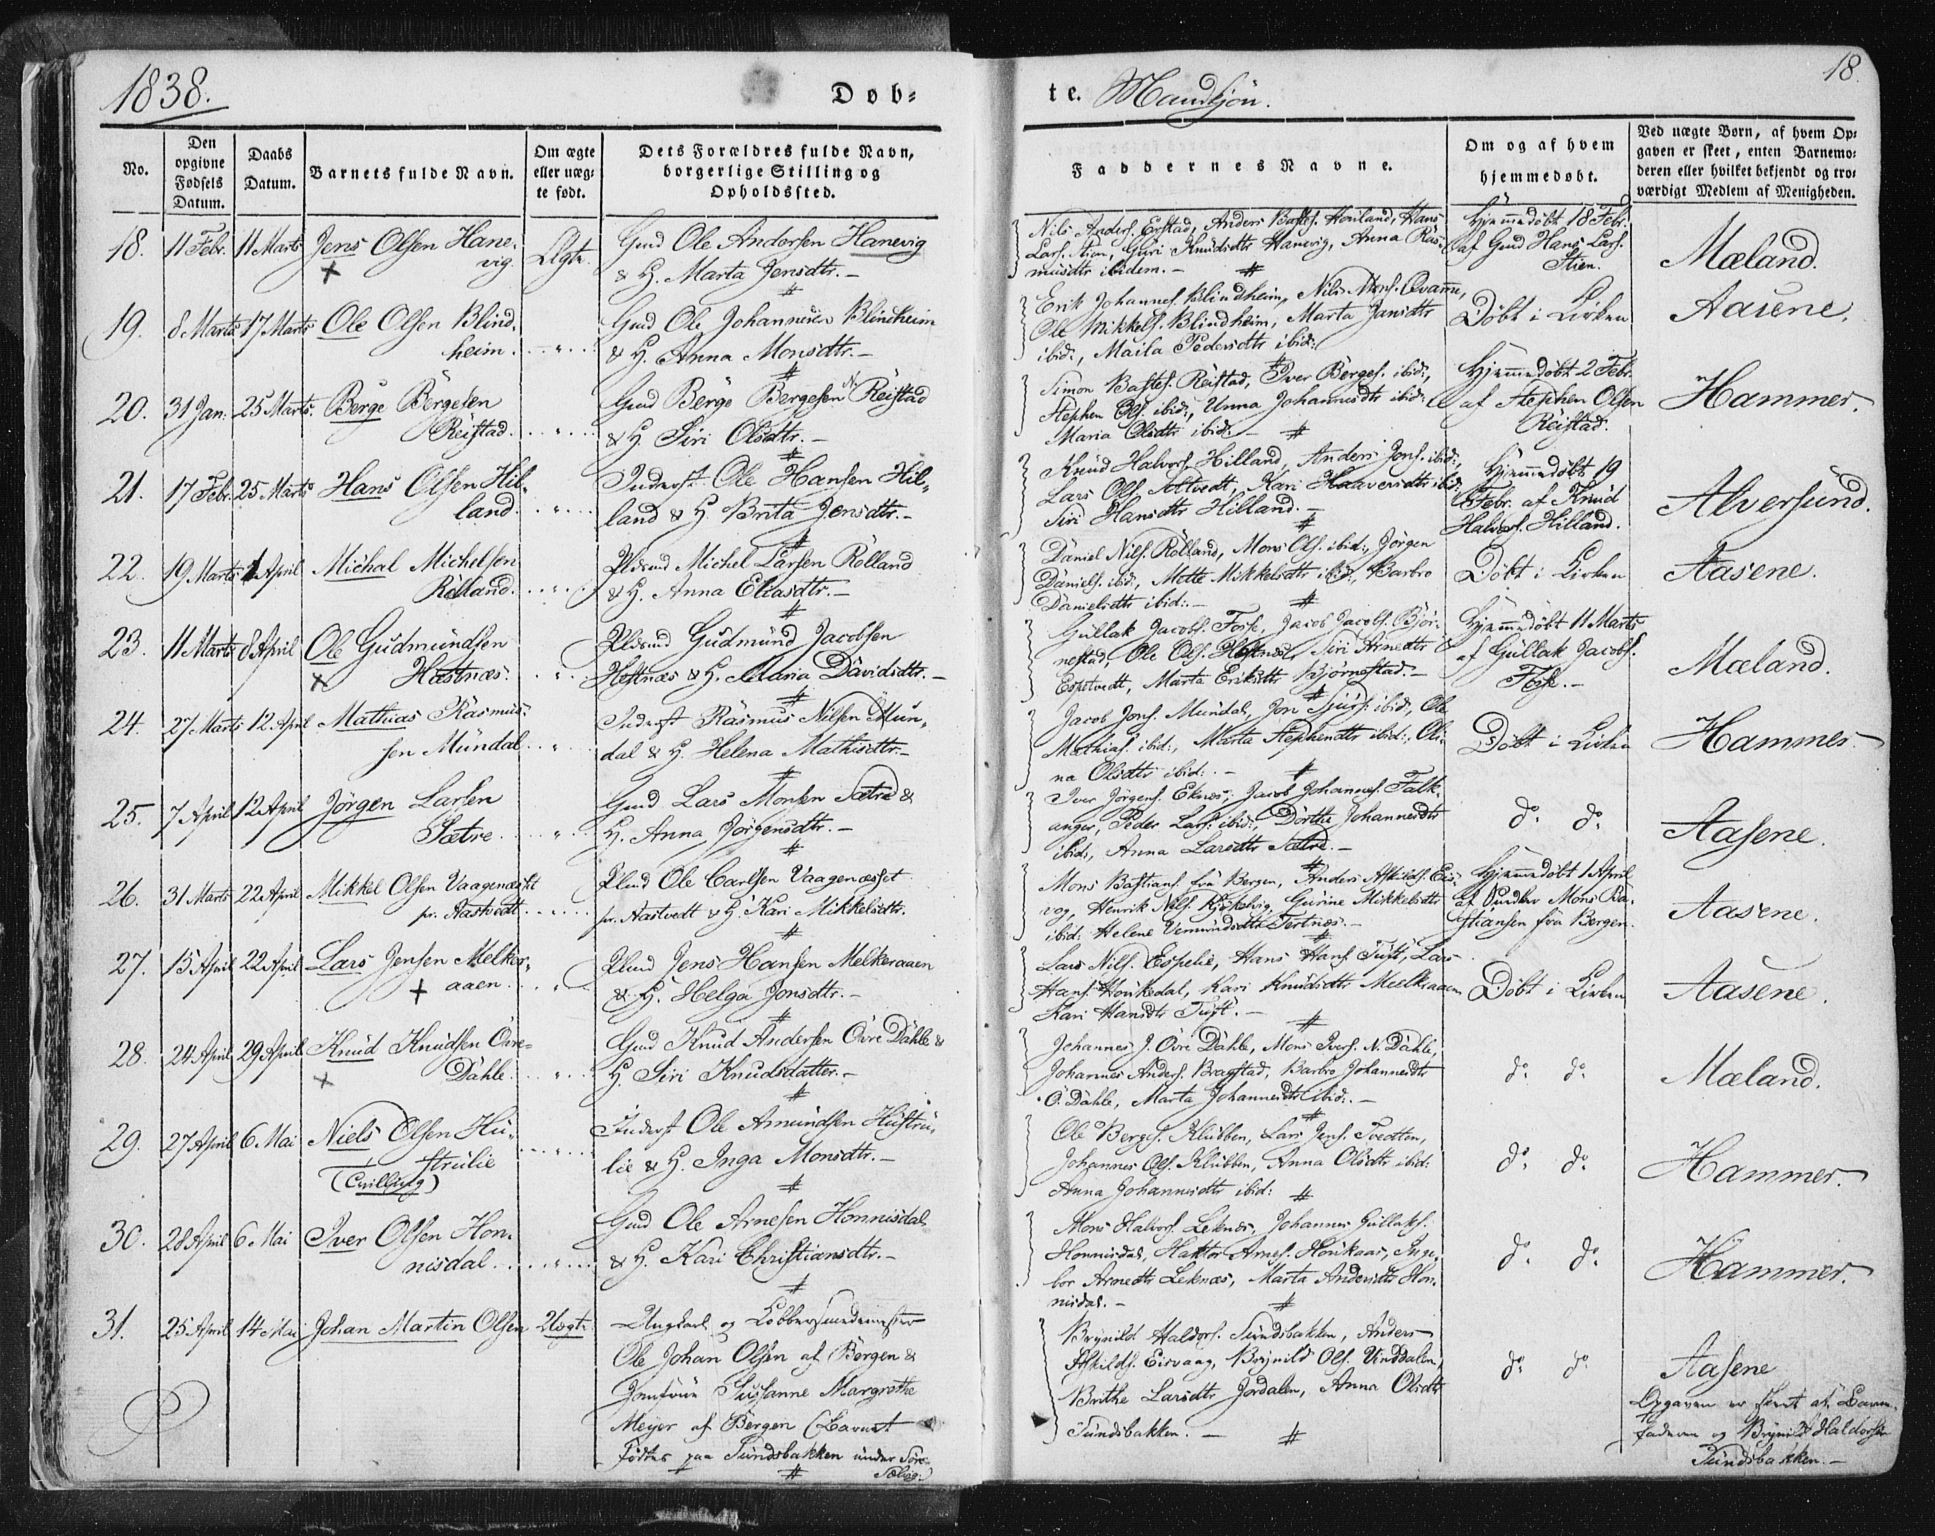 1838.
Døb=
te. Mandkjön.
18.
No.
Den opgivne Fødsels Datum.
Daabs Datum.
Barnets fulde Navn.
Om ægte eller uægte født.
Dets Forældres fulde Navn, borgerlige Stilling og Opholdssted.
Faddernes Navne.
Om og af hvem hjemmedøbt.
Ved uægte Børn, af hvem Opgaven er skeet, enten Barnemoderen eller hvilket bekjendt og troværdigt Medlem af Menigheden.
18. 11 Febr. 11 Marts Jens Olsen Hane-
vig. Ægte.
Gmd Ole Andersen Hanevig
& H. Marta Jensdtr. -
Nils Anders. Erstad, Anders Bastes. Houland, Hans
Lars. Stien, Guri Knudsdtr Hanevig, Anna Ras-
musdtr ibidem. -
Hjemmedöbt 18 Febr.
af Gmd Hans Lars.
Stien.
Mæland.
19. 8. Marts 17 Marts Ole Olsen Blind-
heim.
Gmd Ole Johannesen Blindheim
& H. Anna Monsdtr. -
Erik Johannes. Blindheim, Nils Mons. Qvamme,
Ole Mikkels. Blindheim, Marta Jansdtr
ibid:, Maila Pedersdtr ibid:
Döbt i Kirken
Aasene.
20. 31 Jan. 25 Marts. Berge Börgesen
Reistad.
Gmd Berge Bergesen N. Reistad
& H. Siri Olsdtr. -
Simon Bastes. Reistad, Iver Berges. ibid:,
Stephen Ols. ibid:, Unna Johannesdtr ibid:
Maria Olsdtr ibid: -
Hjemmedöbt 2 Febr.
af Stephen Olsen
Reistad.
Hammer.
21. 17 Febr. 25 Marts Hans Olsen Hil-
land.
Inderst Ole Hansen Hil-
land & H. Brita Jensdtr. -
Knud Halvors. Hilland, Anders Jons. ibid:,
Lars Ols. Altvedt, Kari Haaversdtr ibid:
Siri Hansdtr Hilland. -
Hjemmedöbt 19
Febr. af Knud
Halvors. Hilland.
Alversund.
22. 19 Marts 1 April Michal Michelsen
Rölland.
Pldsmd Michel Larsen Rölland
& H. Anna Eliasdtr. -
Daniel Nils. Rölland, Mons Ols. ibid:, Jörgen
Daniels. ibid:, Mette Mikkelsdtr ibid:, Barbro
Danielsdtr ibid: -
Döbt i Kirken
Aasene.
23. 11 Marts 8 April Ole Gudmundsen
Hostnæs.
Pldsmd Gudmund Jacobsen
Hostnæs & H. Maria Davidsdtr. -
Gullak Jacobs. Fosse, Jacob Jacobs. Björ-
nestad, Ole Ols. Hostnæs, Siri Arnesdtr
Espetvedt, Marta Eriksdtr Björnestad. -
Hjemmedöbt 11 Marts
af Gullak Jacobs.
Fosse. -
Mæland.
24. 27 Marts 12 April Mathias Rasmus-
sen Mundal
Inderst Rasmus Nilsen Mun-
dal & H. Helena Mathisdtr. -
Jacob Jons. Mundal, Jon Sjurs. ibid:, Ole
Mathias. ibid:, Marta Stephensdtr ibid:, Oli-
na Olsdtr ibid: -
Döbt i Kirken
Hammer.
25. 7 April 12 April Jörgen Larsen
Sætre.
Gmd Lars Monsen Sætre &
H. Anna Jörgensdtr. -
Iver Jörgens. Eknes, Jacob Johannes. Falk-
anger, Peder Lars. ibid:, Dorthe Johannesdtr
ibid:, Anna Larsdtr Sætre. -
do. do.
Aasene.
26. 31 Marts 22 April Mikkel Olsen Vaagenæsset
pr. Aastvedt
Plmd Ole Carlsen Vaagenæsset
pr. Aastvedt & H. Kari Mikkelsdtr.
Mons Bastians. fra Bergen, Anders Askilds. Eis-
vog, Henrik Nils. Kjökelvig, Gurine Mikkelsdtr
ibid: Helene Vemundsdtr Tertnes. -
Hjemmedöbt 1 April
af Mons Ba-
stiansen fra Bergen.
Aasene.
27. 15 April 22 April Lars Jensen Melker-
aaen.
Plmd Jens Hansen Melkeraaen
& H. Helga Jonsdtr. -
Lars Nils. Espelie, Hans Hans. Tuft, Lars
Hans. Houkedal, Kari Knudsdtr Meelkraaen
Kari Hansdtr Tuft. -
Döbt i Kirken
Aasene.
28. 24 April 29 April Knud Knudsen Övre-
Dahle.
Gmd Knud Andersen Övre Dahle &
H. Siri Knudsdatter. -
Johannes J. Övre Dahle, Mons Ivers. N. Dahle,
Johannes Anders. Bragstad, Barbro Johannesdtr
Ö. Dahle, Marta Johannesdtr ibid: -
do. do.
Mæland.
29. 27 April 6 Mai Niels Olsen Hu-
strulie
(Tvilling)
Inderst Ole Amundsen Hustru-
lie & H. Inga Monsdtr. -
Ole Berges. Klubben, Lars Jens. Tvedten,
Johannes Ols. Klubben, Anna Olsdtr ibid:
Anna Johannesdtr ibid:
do. do.
Hammer.
30. 28 April 6. Mai Iver Olsen Hon-
nisdal.
Gmd Ole Arnesen Honnisdal
& H. Kari Christiansdtr. -
Mons Halvors. Leknes, Johannes Gullaks.
Honnisdal, Haktor Arnes. Honkaas, Inge-
bor Arnesdtr Leknæs, Marta Andersdtr Hon-
nisdal. -
do. do.
Hammer.
31. 25 April 14 Mai Johan Martin Olsen Uægte.
Ungkarl og Kobbersmedmester
Ole Johan Olsen af Bergen &
Jomfrue Susanne Margrethe
Meyer af Bergen (Barnet
födtes paa Sundsbakken under
Brynild Haldors. Sundsbakken, Anders
Askilds. Eisvaag, Brynild Ols. Unddalen,
Brithe Larsdtr Jordalen, Anna Olsdtr
Sundsbakken. -
do. do.
Aasene
Opgaven er skeet af Barne-
faderen og Brynild Haldorsen
Sundsbakken. -